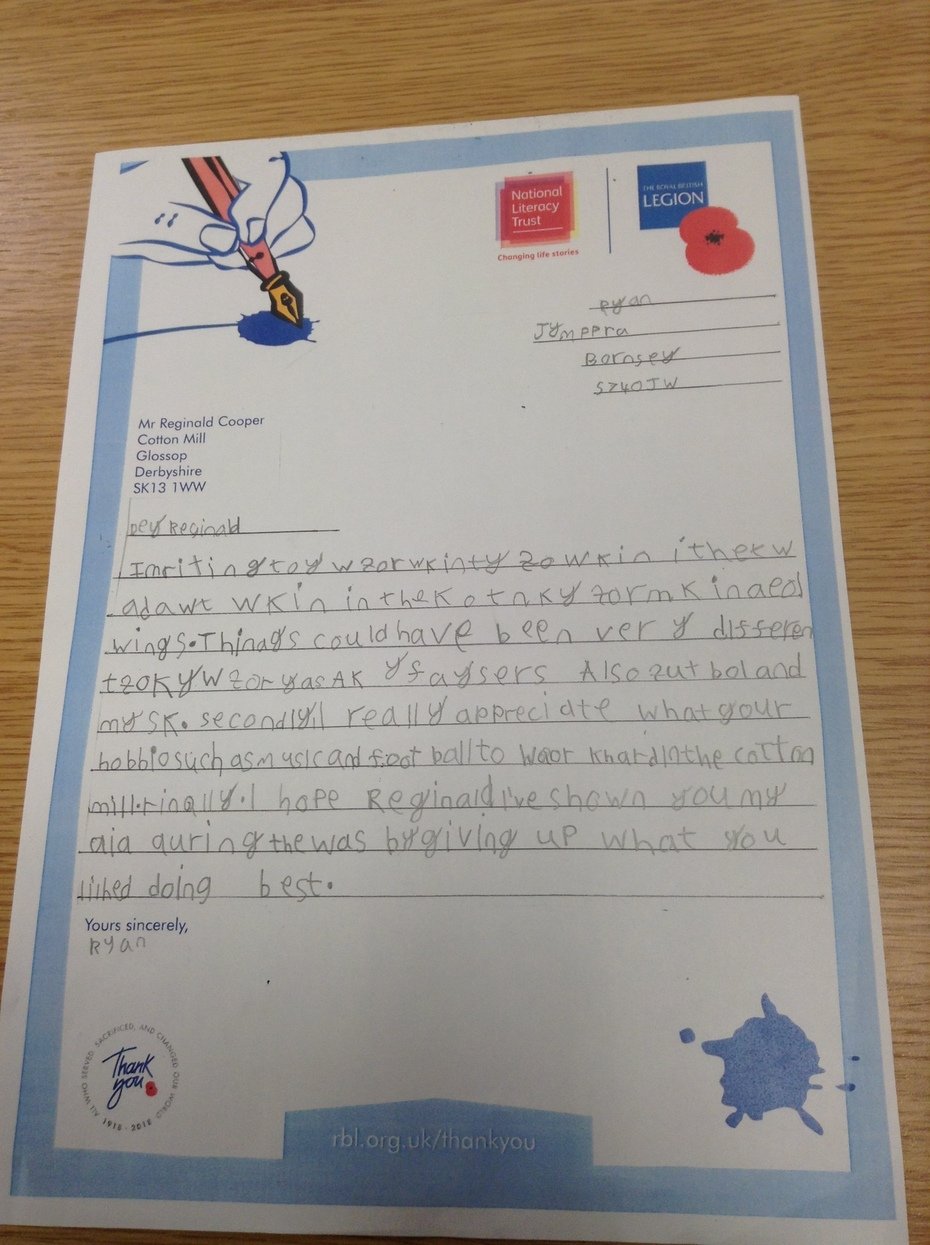 National
Literacy
Trust
Changing life stories
THE ROYAL BRITISH
LEGION
Ryan
Jymppra
Bornsey
S740JW
Mr Reginald Cooper
Cotton Mill
Glossop
Derbyshire
SK13 1WW
Dey Reginald
Imriting toy w zorwkinty zowkin i thekw
adawt wkin in the kotnky zormkinaed
wings. Things could have been very differen
tzokyw zoryas AK yfaysers Also zut bol and
my SK. secondly I really appreciate what your
hobbiosuch as music and foot ball to woor khard in the cotton
mill. Finally. I hope Reginald i've shown you my
aia auring the was by giving up what you
liked doing best.
Yours sincerely,
Ryan
ALL WHO SERVED, SACRIFICED, AND CHANGED OUR WORLD
Thank
you
1918 - 2018
rbl.org.uk/thankyou